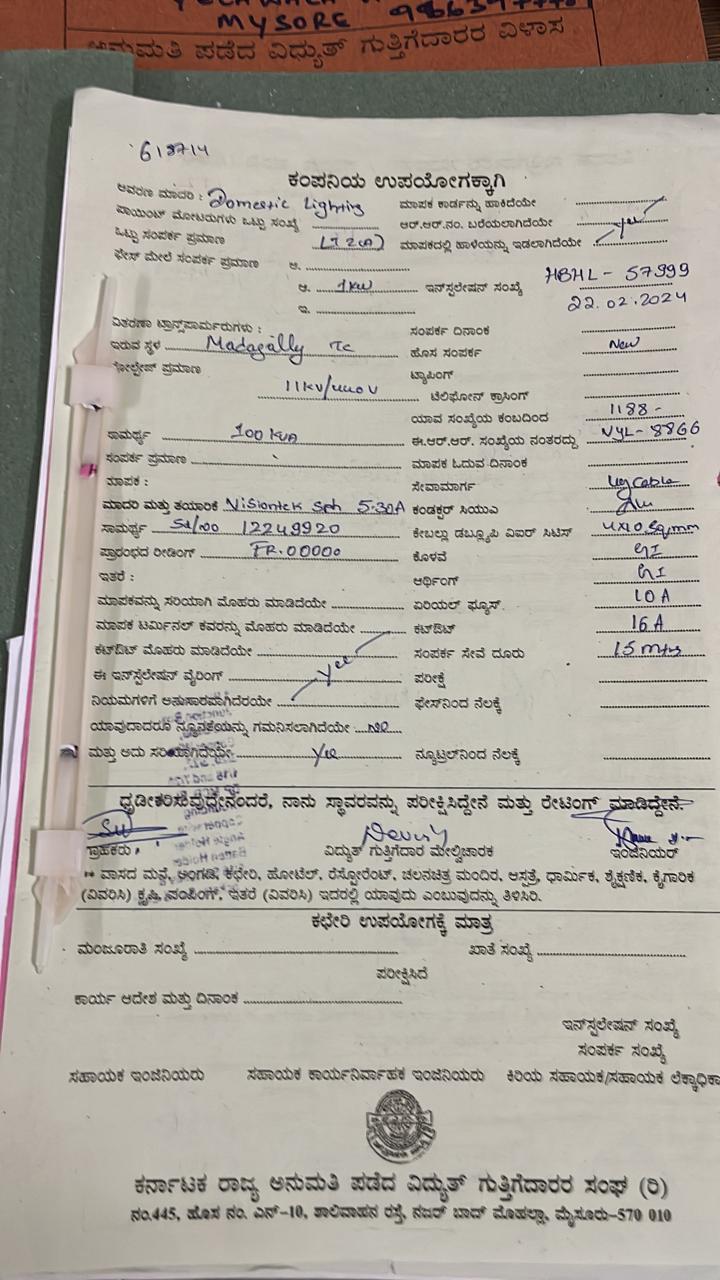 MYSORE
ಅನುಮತಿ ಪಡೆದ ವಿದ್ಯುತ್ ಗುತ್ತಿಗೆದಾರರ ವಿಳಾಸ
618714
ಕಂಪನಿಯ ಉಪಯೋಗಕ್ಕಾಗಿ
ಆವರಣ ಮಾದರಿ : Domestic Lighting ಮಾಪಕ ಕಾರ್ಡನ್ನು ಹಾಕಿದೆಯೇ
ಪಾಯಿಂಟ್ ಮೋಟರುಗಳು ಒಟ್ಟು ಸಂಖ್ಯೆ ಆರ್.ಆರ್.ನಂ. ಬರೆಯಲಾಗಿದೆಯೇ yes
ಒಟ್ಟು ಸಂಪರ್ಕ ಪ್ರಮಾಣ LT 2(A) ಮಾಪಕದಲ್ಲಿ ಹಾಳೆಯನ್ನು ಇಡಲಾಗಿದೆಯೇ
ಫೇಸ್ ಮೇಲೆ ಸಂಪರ್ಕ ಪ್ರಮಾಣ ಅ.
ಆ. 1KW ಇನ್‌ಸ್ಪಲೇಷನ್ ಸಂಖ್ಯೆ HBHL - 57999
ಇ. 22.02.2024
ವಿತರಣಾ ಟ್ರಾನ್ಸ್‌ಫಾರ್ಮರುಗಳು : ಸಂಪರ್ಕ ದಿನಾಂಕ
ಇರುವ ಸ್ಥಳ Madagally TC ಹೊಸ ಸಂಪರ್ಕ New
ವೋಲ್ಟೇಜ್ ಪ್ರಮಾಣ ಟ್ಯಾಪಿಂಗ್
11KV/440V ಟೆಲಿಫೋನ್ ಕ್ರಾಸಿಂಗ್
ಯಾವ ಸಂಖ್ಯೆಯ ಕಂಬದಿಂದ 1188 -
ಸಾಮರ್ಥ್ಯ 100 KVA ಈ.ಆರ್.ಆರ್. ಸಂಖ್ಯೆಯ ನಂತರದ್ದು VYL - 8866
ಸಂಪರ್ಕ ಪ್ರಮಾಣ ಮಾಪಕ ಓದುವ ದಿನಾಂಕ
ಮಾಪಕ : ಸೇವಾಮಾರ್ಗ ug cable
ಮಾದರಿ ಮತ್ತು ತಯಾರಿಕೆ Visiontek Sph 5-30A ಕಂಡಕ್ಟರ್ ಸಿಯುಎ
ಸಾಮರ್ಥ್ಯ 12249920 ಕೇಬಲ್ಲು ಡಬ್ಲ್ಯೂಪಿ ವಿಐರ್ ಸಿಟಿಸ್ 4x10 Sqmm
ಪ್ರಾರಂಭದ ರೀಡಿಂಗ್ FR.00000 ಕೊಳವೆ GI
ಇತರೆ : ಆರ್ಥಿಂಗ್ GI
ಮಾಪಕವನ್ನು ಸರಿಯಾಗಿ ಮೊಹರು ಮಾಡಿದೆಯೇ ಏರಿಯಲ್ ಫ್ಯೂಸ್. 10A
ಮಾಪಕ ಟರ್ಮಿನಲ್ ಕವರನ್ನು ಮೊಹರು ಮಾಡಿದೆಯೇ ಕಟ್‌ಔಟ್ 16A
ಕಟ್‌ಔಟ್ ಮೊಹರು ಮಾಡಿದೆಯೇ ಸಂಪರ್ಕ ಸೇವೆ ದೂರು 15 mtrs
ಈ ಇನ್‌ಸ್ಪಲೇಷನ್ ವೈರಿಂಗ್ yes ಪರೀಕ್ಷೆ
ನಿಯಮಗಳಿಗೆ ಅನುಸಾರವಾಗಿದೆರಯೇ ಫೇಸ್‌ನಿಂದ ನೆಲಕ್ಕೆ
ಯಾವುದಾದರೂ ನ್ಯೂನತೆಯನ್ನು ಗಮನಿಸಲಾಗಿದೆಯೇ No
ಮತ್ತು ಅದು ಸರಿಯಾಗಿದೆಯೇ yes ನ್ಯೂಟ್ರಲ್‌ನಿಂದ ನೆಲಕ್ಕೆ
ಧೃಡೀಕರಿಸುವುದೇನಂದರೆ, ನಾನು ಸ್ಥಾವರವನ್ನು ಪರೀಕ್ಷಿಸಿದ್ದೇನೆ ಮತ್ತು ರೇಟಿಂಗ್ ಮಾಡಿದ್ದೇನೆ.
ಗ್ರಾಹಕರು ವಿದ್ಯುತ್ ಗುತ್ತಿಗೆದಾರ ಮೇಲ್ವಿಚಾರಕ ಇಂಜಿನಿಯರ್
** ವಾಸದ ಮನೆ, ಅಂಗಡಿ, ಕಛೇರಿ, ಹೋಟೆಲ್, ರೆಸ್ಟೋರೆಂಟ್, ಚಲನಚಿತ್ರ ಮಂದಿರ, ಆಸ್ಪತ್ರೆ, ಧಾರ್ಮಿಕ, ಶೈಕ್ಷಣಿಕ, ಕೈಗಾರಿಕ
(ವಿವರಿಸಿ) ಕೃಷಿ, ಪಂಪಿಂಗ್, ಇತರೆ (ವಿವರಿಸಿ) ಇದರಲ್ಲಿ ಯಾವುದು ಎಂಬುವುದನ್ನು ತಿಳಿಸಿರಿ.
ಕಛೇರಿ ಉಪಯೋಗಕ್ಕೆ ಮಾತ್ರ
ಮಂಜೂರಾತಿ ಸಂಖ್ಯೆ ಖಾತೆ ಸಂಖ್ಯೆ
ಪರೀಕ್ಷಿಸಿದೆ
ಕಾರ್ಯ ಆದೇಶ ಮತ್ತು ದಿನಾಂಕ
ಇನ್‌ಸ್ಪಲೇಷನ್ ಸಂಖ್ಯೆ
ಸಂಪರ್ಕ ಸಂಖ್ಯೆ
ಸಹಾಯಕ ಇಂಜಿನಿಯರು ಸಹಾಯಕ ಕಾರ್ಯನಿರ್ವಾಹಕ ಇಂಜಿನಿಯರು ಕಿರಿಯ ಸಹಾಯಕ/ಸಹಾಯಕ ಲೆಕ್ಕಾಧಿಕಾ
ಕರ್ನಾಟಕ ರಾಜ್ಯ ಅನುಮತಿ ಪಡೆದ ವಿದ್ಯುತ್ ಗುತ್ತಿಗೆದಾರರ ಸಂಘ (ರಿ)
ನಂ.445, ಹೊಸ ನಂ. ಎನ್-10, ಶಾಲಿವಾಹನ ರಸ್ತೆ, ನಜರ್ ಬಾದ್ ಮೊಹಲ್ಲಾ, ಮೈಸೂರು-570 010